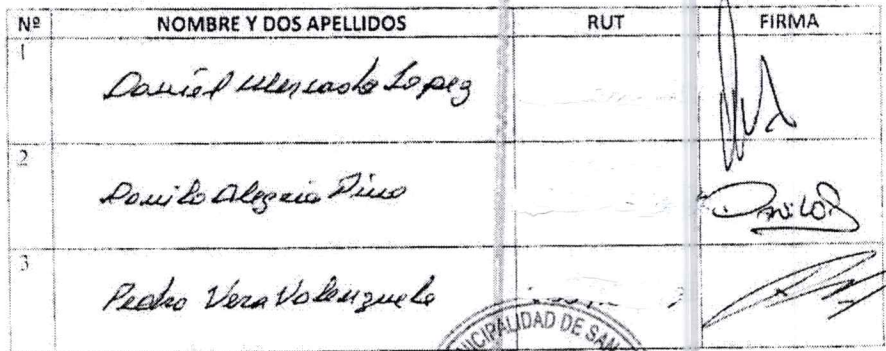 Nº NOMBRE Y DOS APELLIDOS RUT FIRMA
1 Daniel Mercado Lopez
2 Danilo Alegria Pino Danilo
3 Pedro Vera Valenzuela
MUNICIPALIDAD DE SAN